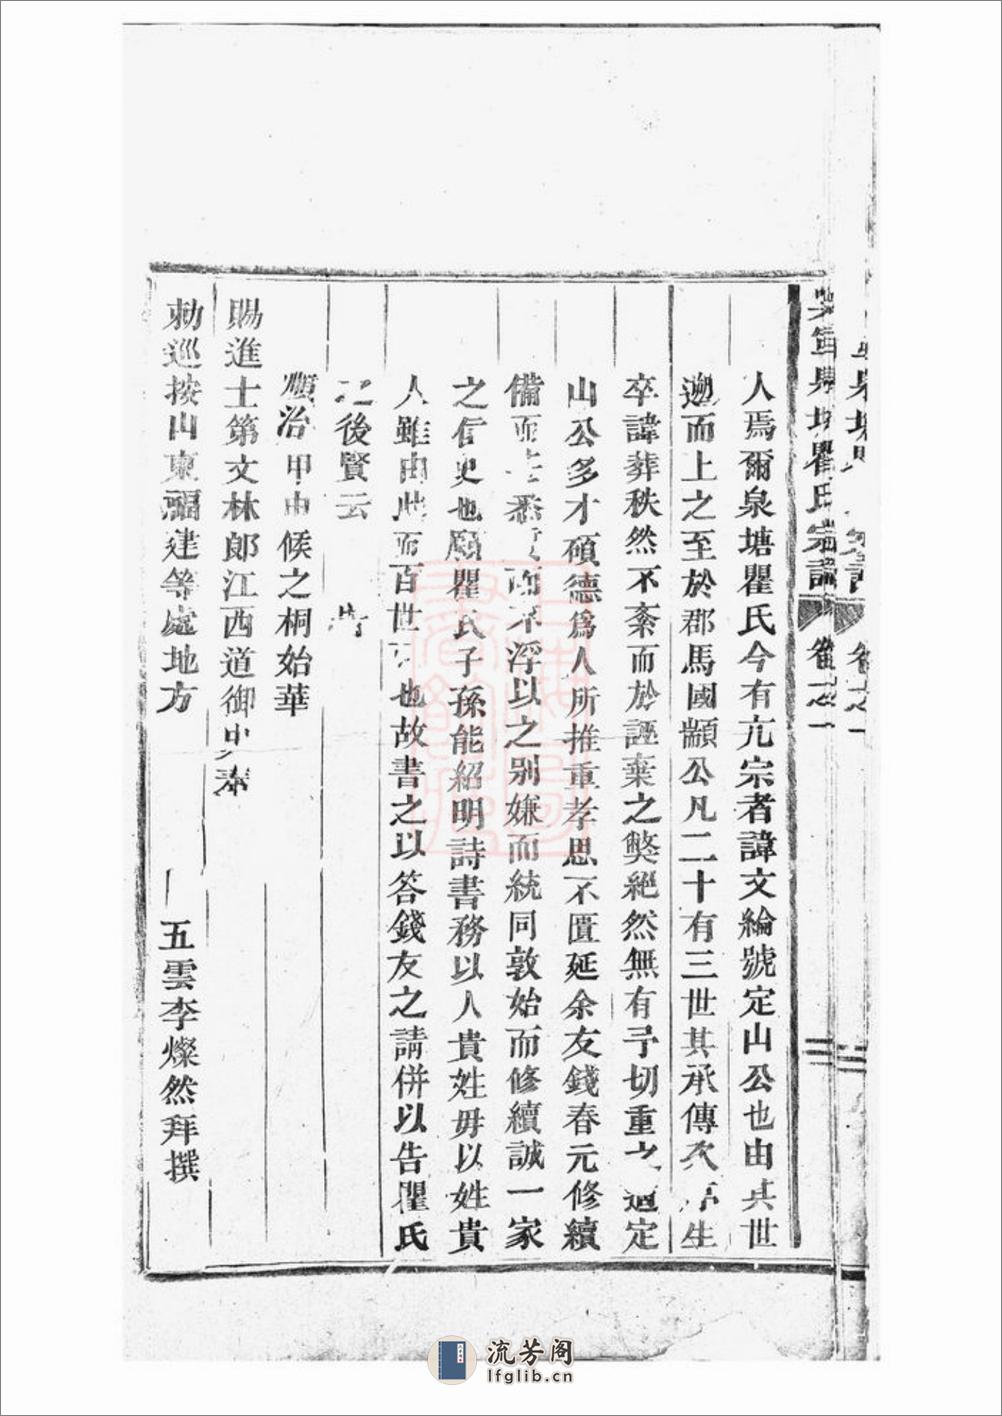 人焉爾泉塘瞿氏今有亢宗者諱文綸號定山公也由其世
遡而上之至於郡馬國顯公凡二十有三世其承傳次序生
卒諱葬秩然不紊而於誣棄之獘絕然無有予切重之適定
山公多才碩德為人所推重孝思不匱延余友錢春元修續
備而悉而不浮以之别嫌而統同敦始而修續誠一家
之信史也願瞿氏子孫能紹明詩書務以人貴姓毋以姓貴
人雖由此而百世可也故書之以答錢友之請併以告瞿氏
之後賢云 告
順治甲申候之桐始華
賜進士第文林郎江西道御史奉
勅巡按山東福建等處地方
五雲李燦然拜撰
泉塘瞿氏宗譜 卷之一
流芳阁
lfglib.cn